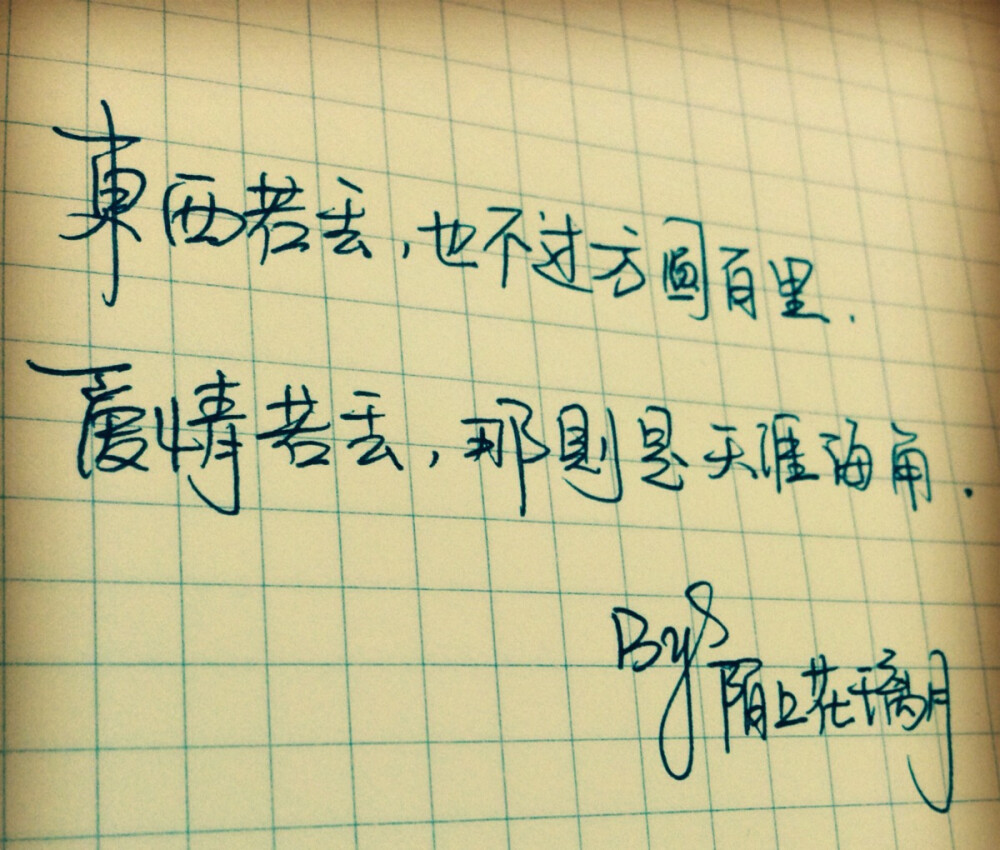 東西若丢,也不过方圆百里.
愛情若丢,那则是天涯海角.
By
陌上花千璃月